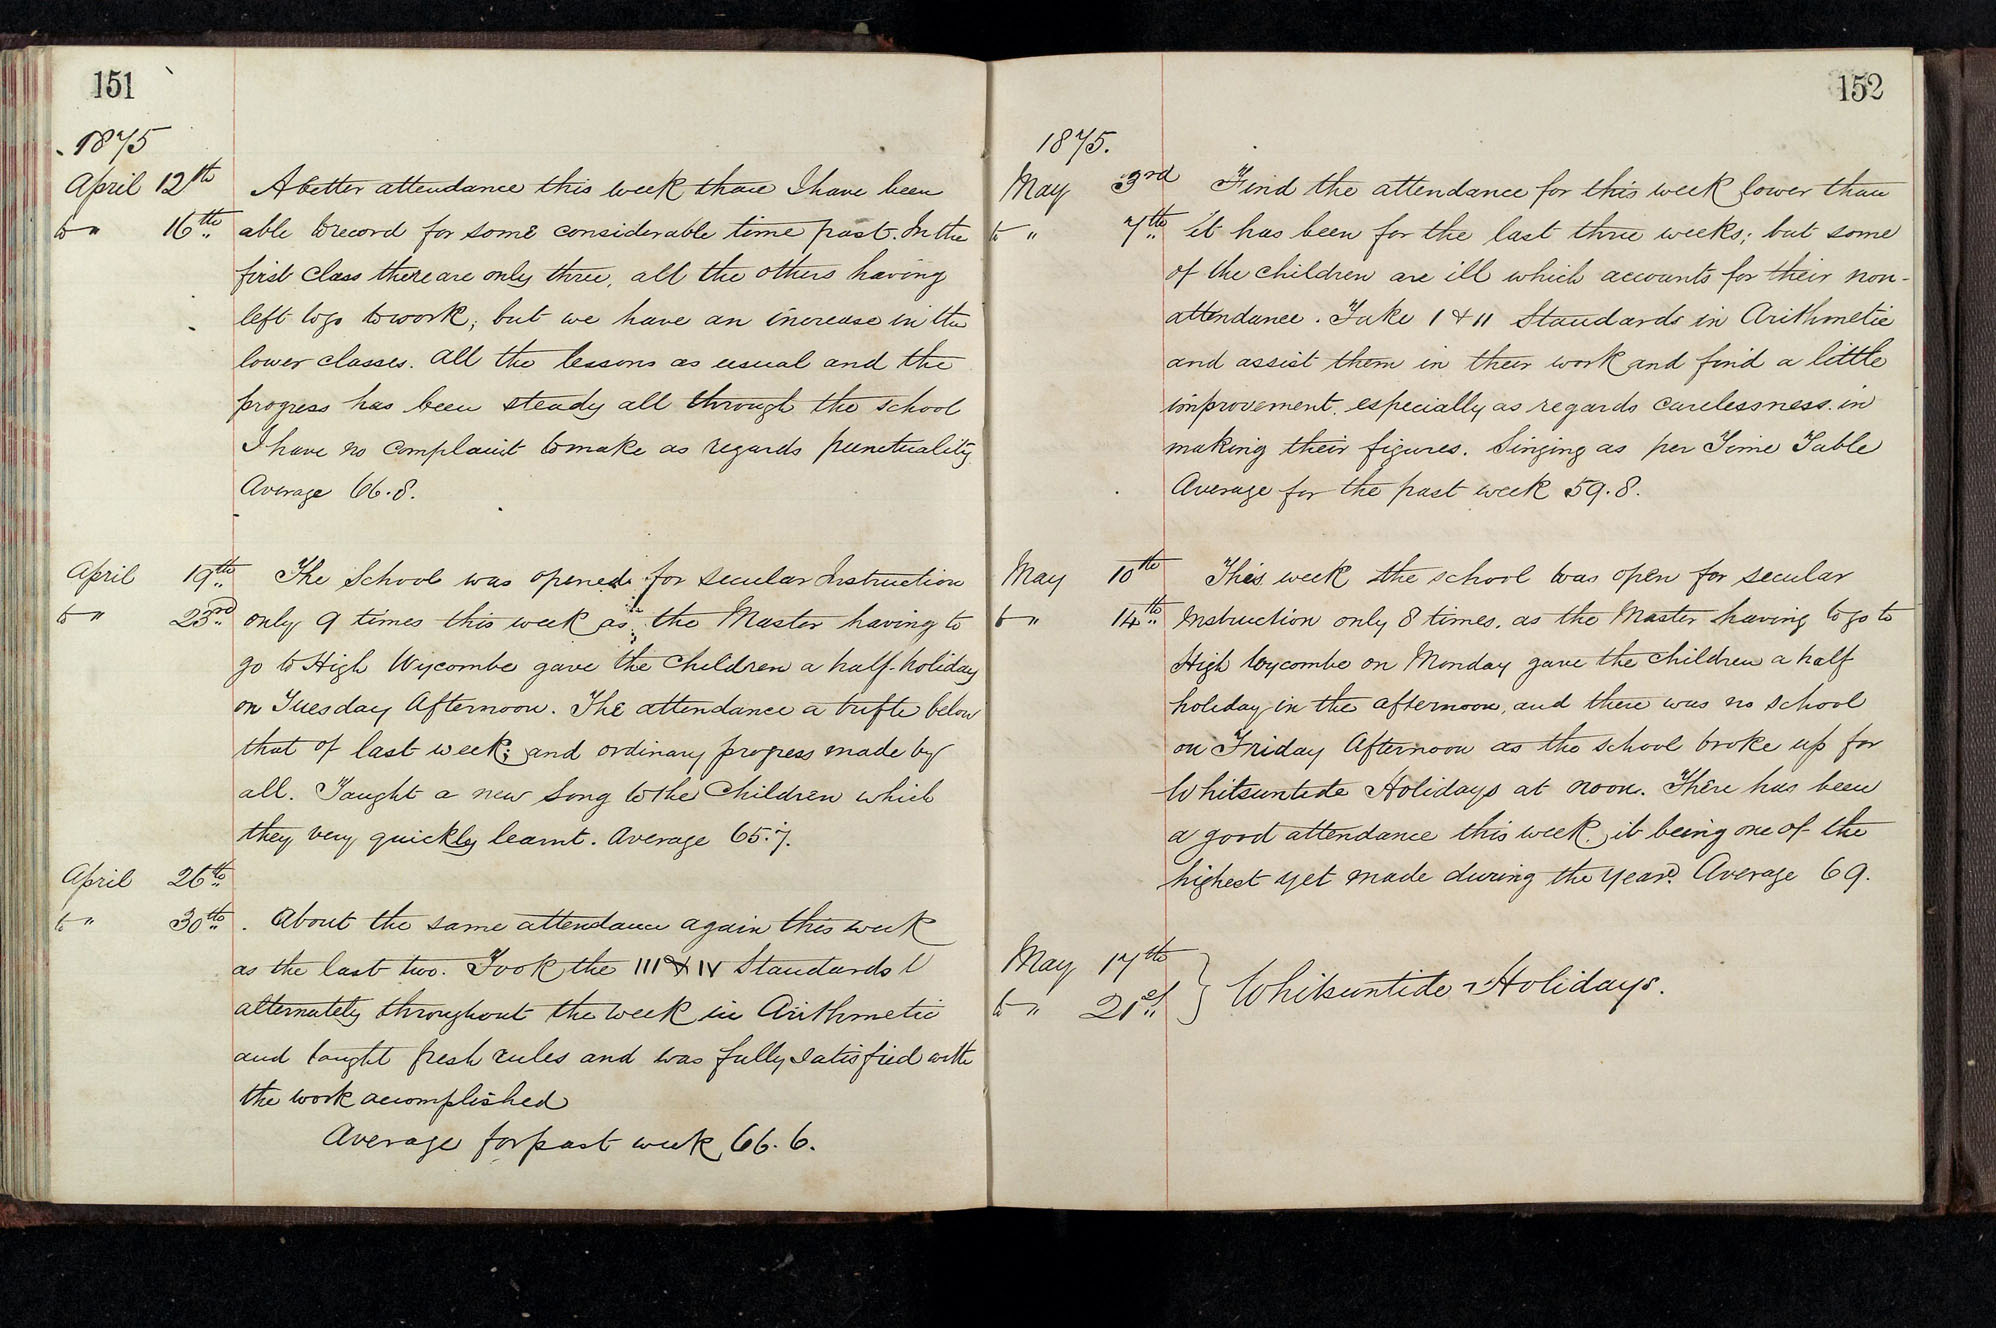 151
1875
April 12th A better attendance this week than I have been
to " 16th able to record for some considerable time past. In the
first class there are only three, all the others having
left to go to work; but we have an increase in the
lower classes. All the lessons as usual and the
progress has been steady all through the school
I have no complaint to make as regards punctuality
Average 66.8.
April 19th The School was opened for secular Instruction
to " 23rd only 9 times this week as the Master having to
go to High Wycombe gave the children a half-holiday
on Tuesday Afternoon. The attendance a trifle below
that of last week; and ordinary progress made by
all. Taught a new Song to the Children which
they very quickly learnt. Average 65.7.
April 26th
to " 30th. About the same attendance again this week
as the last two. Took the III & IV Standards
alternately throughout the week in Arithmetic
and taught fresh rules and was fully satisfied with
the work accomplished
Average for past week 66.6.
152
1875.
May 3rd Find the attendance for this week lower than
to " 7th it has been for the last three weeks; but some
of the children are ill which accounts for their non-
attendance. Take I & II Standards in Arithmetic
and assist them in their work and find a little
improvement, especially as regards carelessness in
making their figures. Singing as per Time Table
Average for the past week 59.8.
May 10th This week the school was open for secular
to " 14th Instruction only 8 times, as the Master having to go to
High Wycombe on Monday gave the children a half
holiday in the afternoon, and there was no school
on Friday Afternoon as the school broke up for
Whitsuntide Holidays at noon. There has been
a good attendance this week, it being one of the
highest yet made during the year. Average 69.
May 17th
to " 21st } Whitsuntide Holidays.